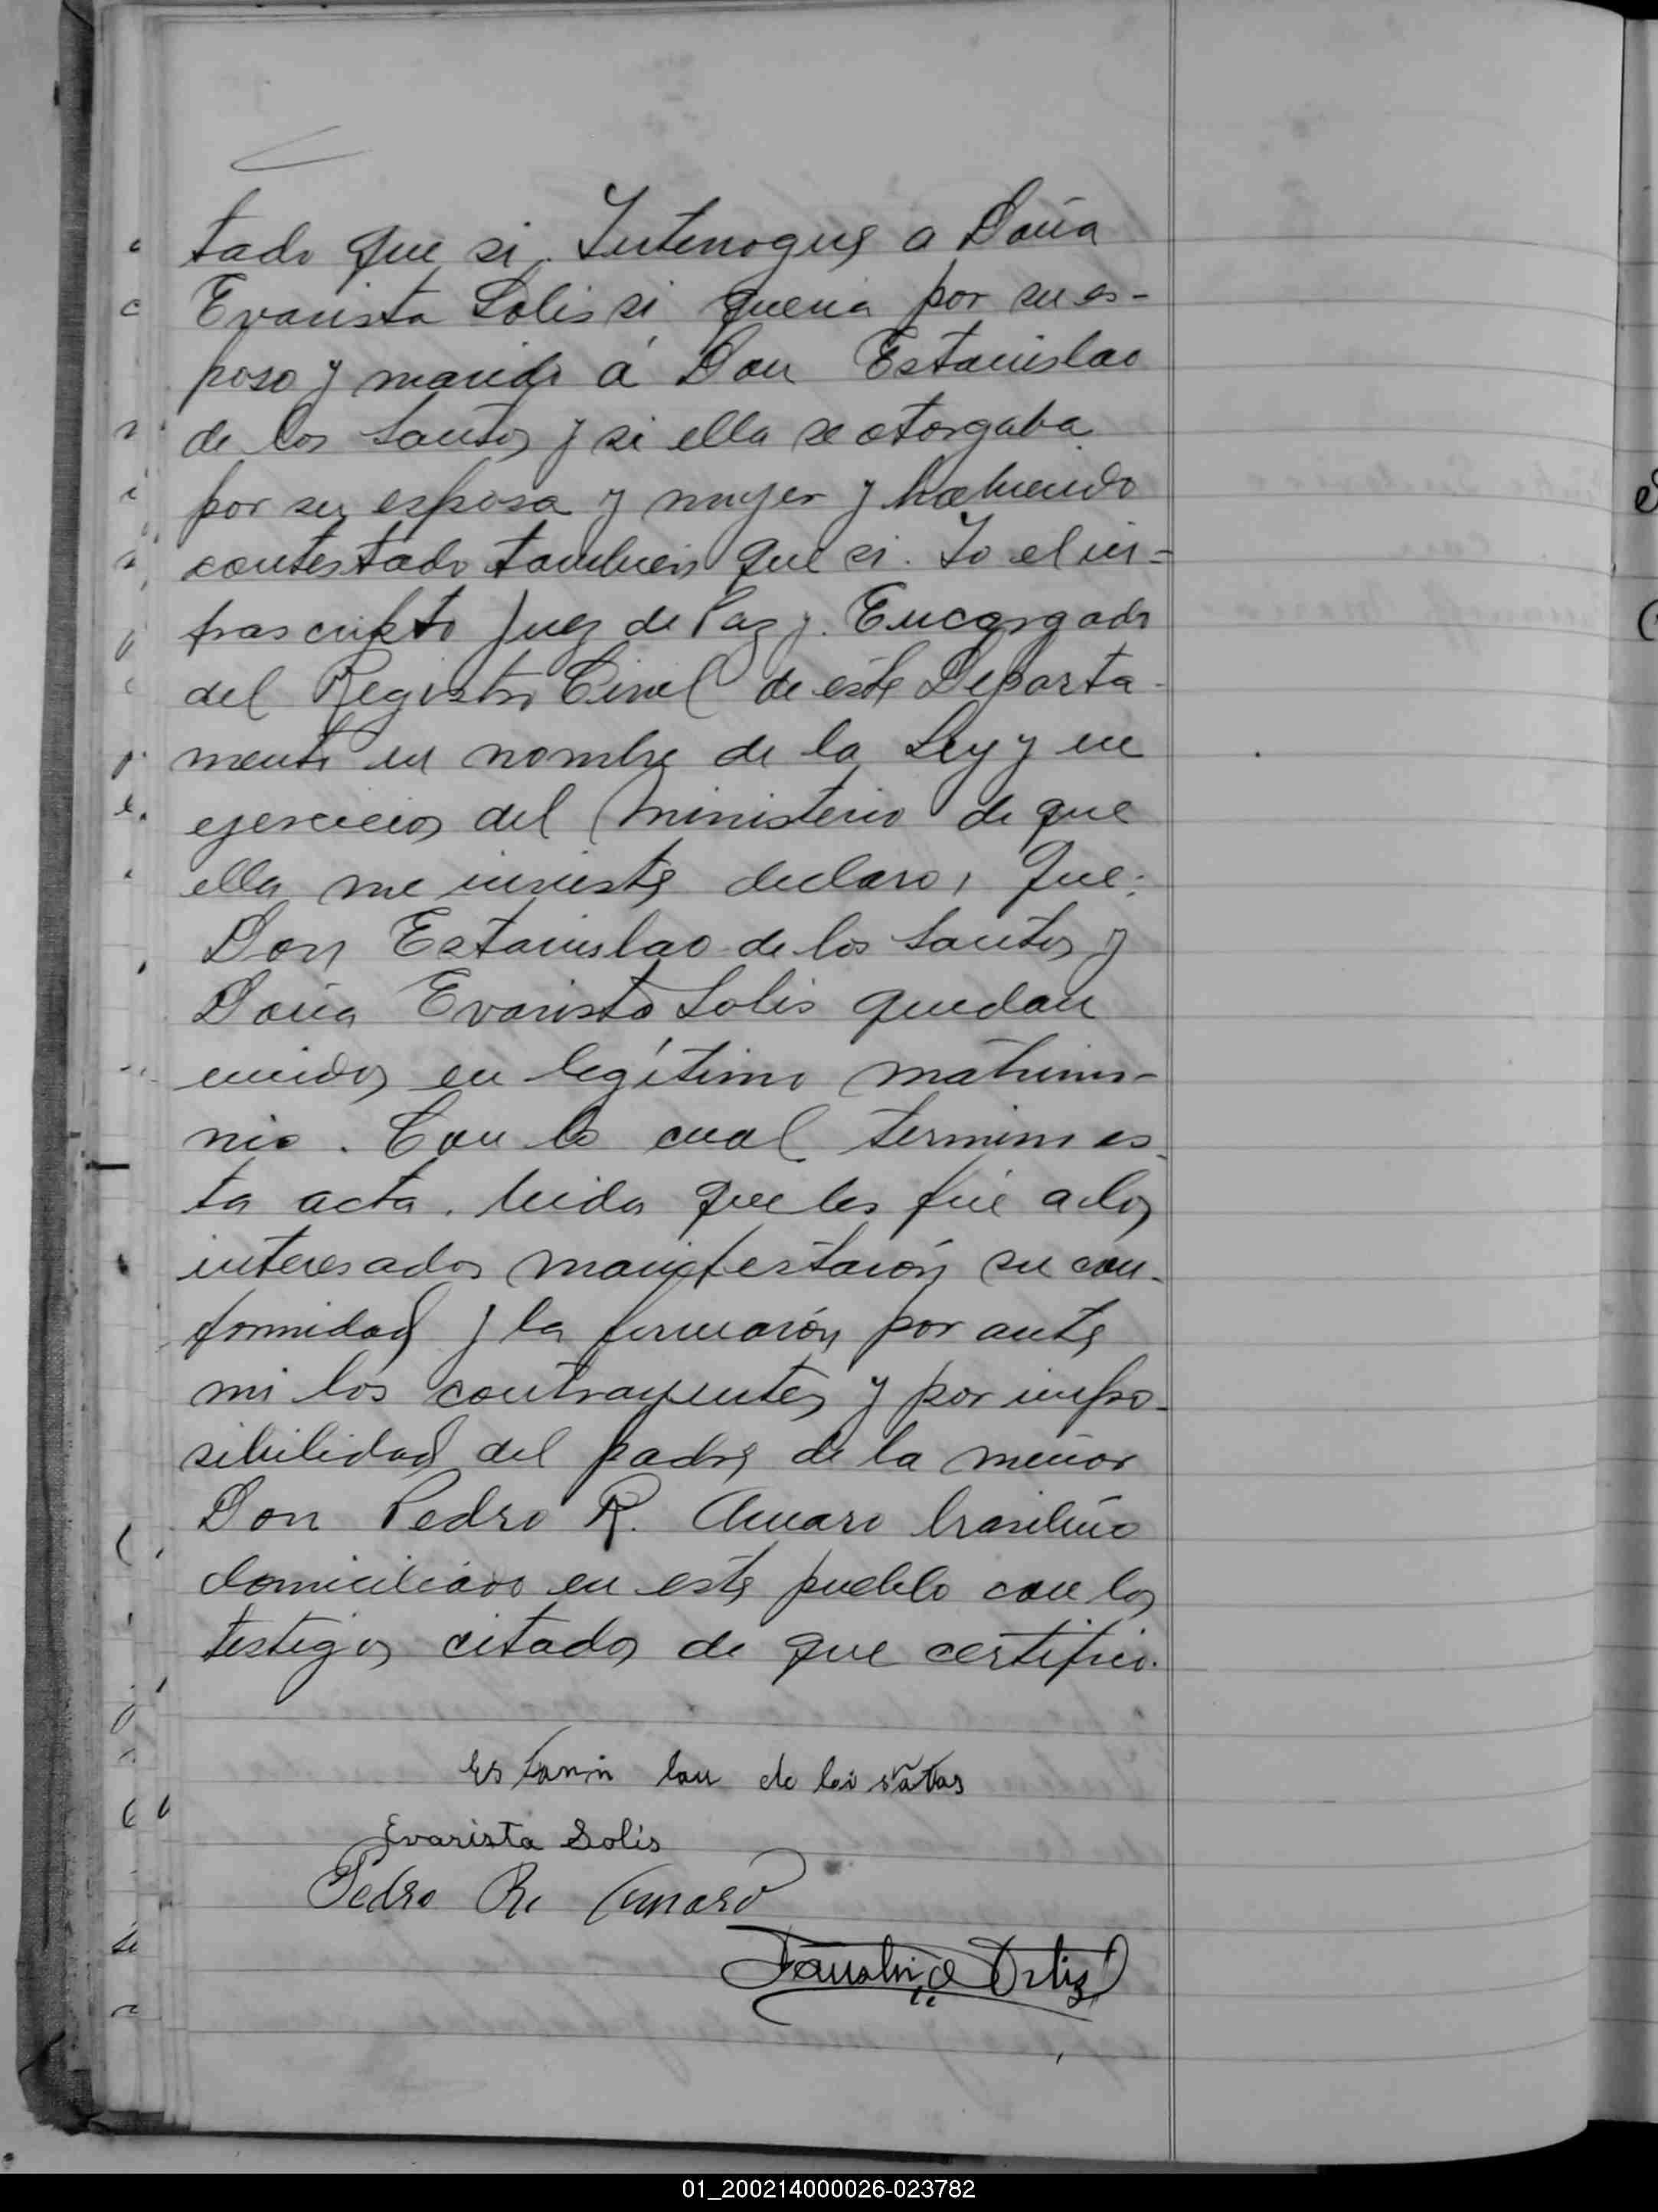 tado que si. Interrogue a Doña
Evarista Solis si queria por su es-
poso y marido á Don Estanislao
de los Santos y si ella se otorgaba
por su esposa y mujer y habiendo
contestado tambien que si. Yo el in-
frascripto Juez de Paz y Encargado
del Registro Civil de éste Departa-
mento en nombre de la Ley y en
ejercicio del Ministerio de que
ella me inviste declaro, que:
Don Estanislao de los Santos y
Doña Evarista Solis quedan
unidos en legítimo matrimo-
nio. Con lo cual termino es-
ta acta. leida que les fué a los
interesados manifestarón su con-
formidad y la firmarón por ante
mi los contrayentes y por impo-
sibilidad del padre de la menor
Don Pedro R. Amaro brasileño
domiciliado en este pueblo con los
testigos citados de que certifico.
de
Evarista Solis
Pedro R. Amaro
Faustino Ortiz
01_200214000026-023782